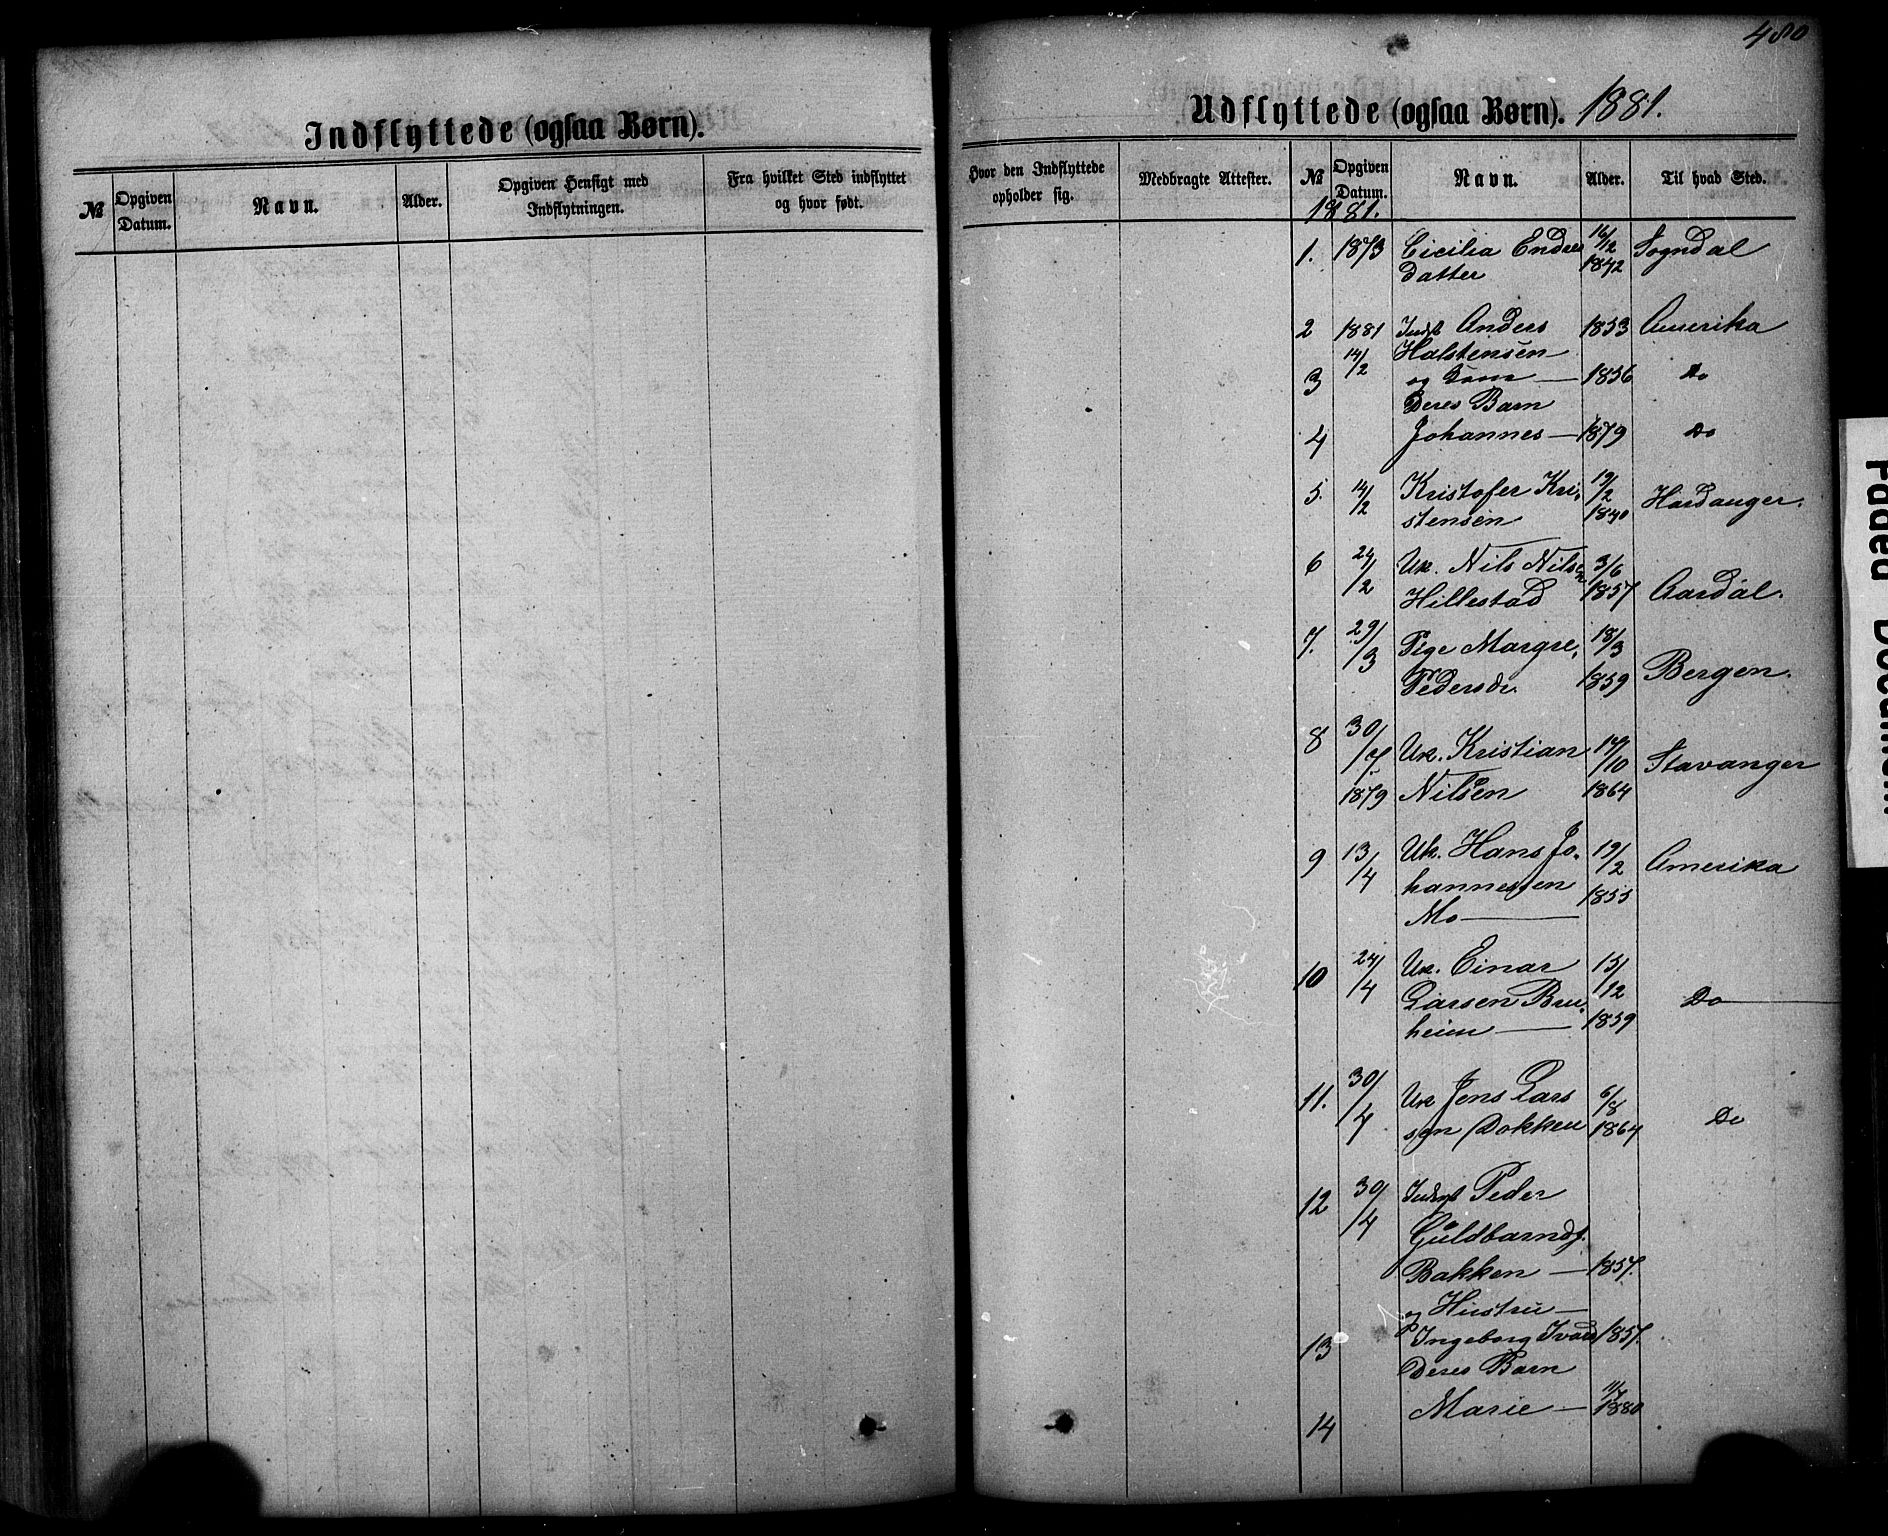 480
Indflyttede (ogsaa Børn).
Udflyttede (ogsaa Børn). 1881.
№ Opgiven Datum. Navn. Alder. Opgiven Hensigt med Indflytningen. Fra hvilket Sted indflyttet og hvor født.
Hvor den Indflyttede opholder sig. Medbragte Attester. № Opgiven Datum. Navn. Alder. Til hvad Sted.
1881.
1. 1873 Cicilia Endres 16/12 Sogndal
datter 1842
2 1881 Indst Anders 1853 Amerika
14/2 Halstensen
3 og Kone — 1856 Do
Deres Barn
4 Johannes — 1879 Do
5. 14/2 Kristofer Kri, 19/2 Hardanger.
stensen 1840
6 24/2 Uk. Nils Nilsen 3/6
Hillestad 1857 Aardal.
7. 29/3 Pige Margre, 18/3
Pedersdr 1859 Bergen.
8 30/7 Uk. Kristian 14/10 Stavanger
1879 Nilsen 1864
9 13/4 Uk. Hans Jo. 19/2 Amerika
hannessen 1855
Mo —
10 24/4 Uk. Einar 15/12
Larsen Bru, Do —
heim — 1859
11. 30/4 Uk Jens Lars 6/8
sen Dokken 1864 Do
12 30/4 Indst Peder
Guldbrands.
Bakken — 1857.
og Hustru —
13 Ingeborg Ivars 1857.
Deres Barn
14 Marie — 11/7 1880
Paded Document